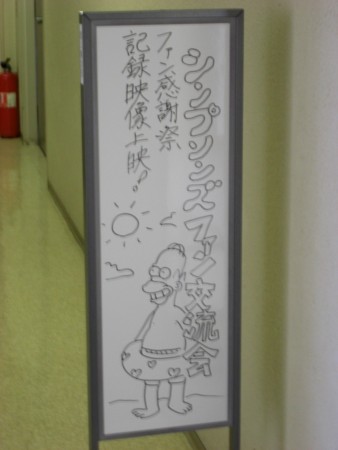 シンプソンズファン交流会
ファン感謝祭
記録映像上映!